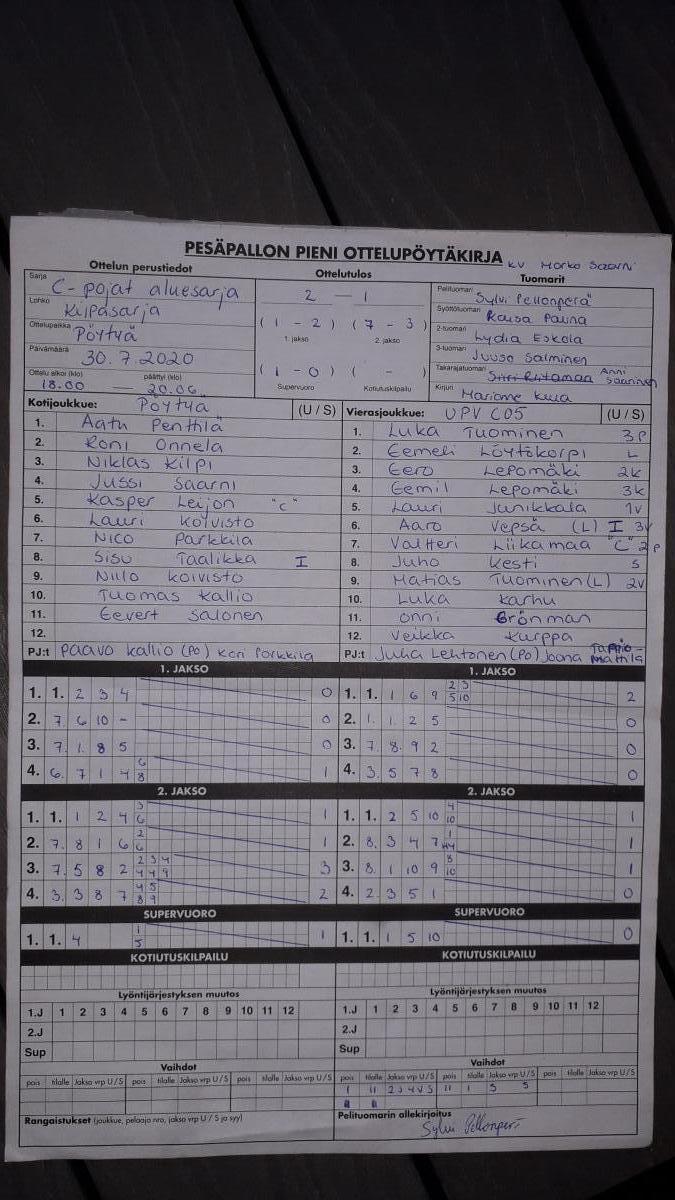 PESÄPALLON PIENI OTTELUPÖYTÄKIRJA KV Marko Saarni
Ottelun perustiedot Ottelutulos Tuomarit
Sarja C-pojat aluesarja
Lohko Kilpasarja
Ottelupaikka Pöytyä
Päivämäärä 30.7.2020
Ottelu alkoi (klo) päättyi (klo)
18.00 — 20.06
2 — 1
(1 - 2) (7 - 3)
1. jakso 2. jakso
(1 - 0) ( - )
Supervuoro Kotiutuskilpailu
Pelituomari Sylvi Pellonperä
Syöttötuomari Raisa Pauna
2-tuomari Lydia Eskola
3-tuomari Juuso Salminen
Takarajatuomari Anni Saarinen
Kirjuri
Kotijoukkue: Pöytyä (U / S)
1. Aatu Penttilä
2. Roni Onnela
3. Niklas Kilpi
4. Jussi Saarni
5. Kasper Leijon "C"
6. Lauri Koivisto
7. Nico Parkkila
8. Sisu Taalikka I
9. Niilo Koivisto
10. Tuomas Kallio
11. Eevert Salonen
12.
PJ:t Paavo Kallio (PO) Kari Parkkila
Vierasjoukkue: UPV C05 (U / S)
1. Luka Tuominen 3P
2. Eemeli Löytökorpi L
3. Eero Lepomäki 2K
4. Eemil Lepomäki 3K
5. Lauri Junikkala 1V
6. Aaro Vepsä (L) I 3V
7. Valtteri Liikamaa "C" 2P
8. Juho Kesti S
9. Matias Tuominen (L) 2V
10. Luka Karhu
11. Onni Grönman
12. Veikka Kurppa
PJ:t Juha Lehtonen (PO) Joona Mattila
1. JAKSO 1. JAKSO
1. 1. 2 3 4 0
2. 7. 6 10 - 0
3. 7. 1. 8 5 0
4. 6. 7 1 4 6 8 1
1. 1. 1 6 9 2 3 5 10 2
2. 1. 1. 2 5 0
3. 7. 8. 9 2 0
4. 3. 5 7 8 0
2. JAKSO 2. JAKSO
1. 1. 1 2 4 3 6 1
2. 7. 8 1 6 2 6 1
3. 7. 5 8 2 2 3 4 4 4 9 3
4. 3. 3 8 7 4 5 8 9 2
1. 1. 2 5 10 4 10 1
2. 8. 3 4 7 1
3. 8. 1 10 9 8 10 1
4. 2. 3 5 1 0
SUPERVUORO SUPERVUORO
1. 1. 4 1 5 1
1. 1. 1 5 10 0
KOTIUTUSKILPAILU KOTIUTUSKILPAILU
Lyöntijärjestyksen muutos Lyöntijärjestyksen muutos
1.J 1 2 3 4 5 6 7 8 9 10 11 12
2.J
Sup
1.J 1 2 3 4 5 6 7 8 9 10 11 12
2.J
Sup
Vaihdot Vaihdot
pois tilalle Jakso vrp U / S pois tilalle Jakso vrp U / S pois tilalle Jakso vrp U / S
pois tilalle Jakso vrp U / S pois tilalle Jakso vrp U / S pois tilalle Jakso vrp U / S
1 11 2J 4V S 11 1 S S
Rangaistukset (joukkue, pelaaja nro, jakso vrp U / S ja syy)
Pelituomarin allekirjoitus
Sylvi Pellonperä